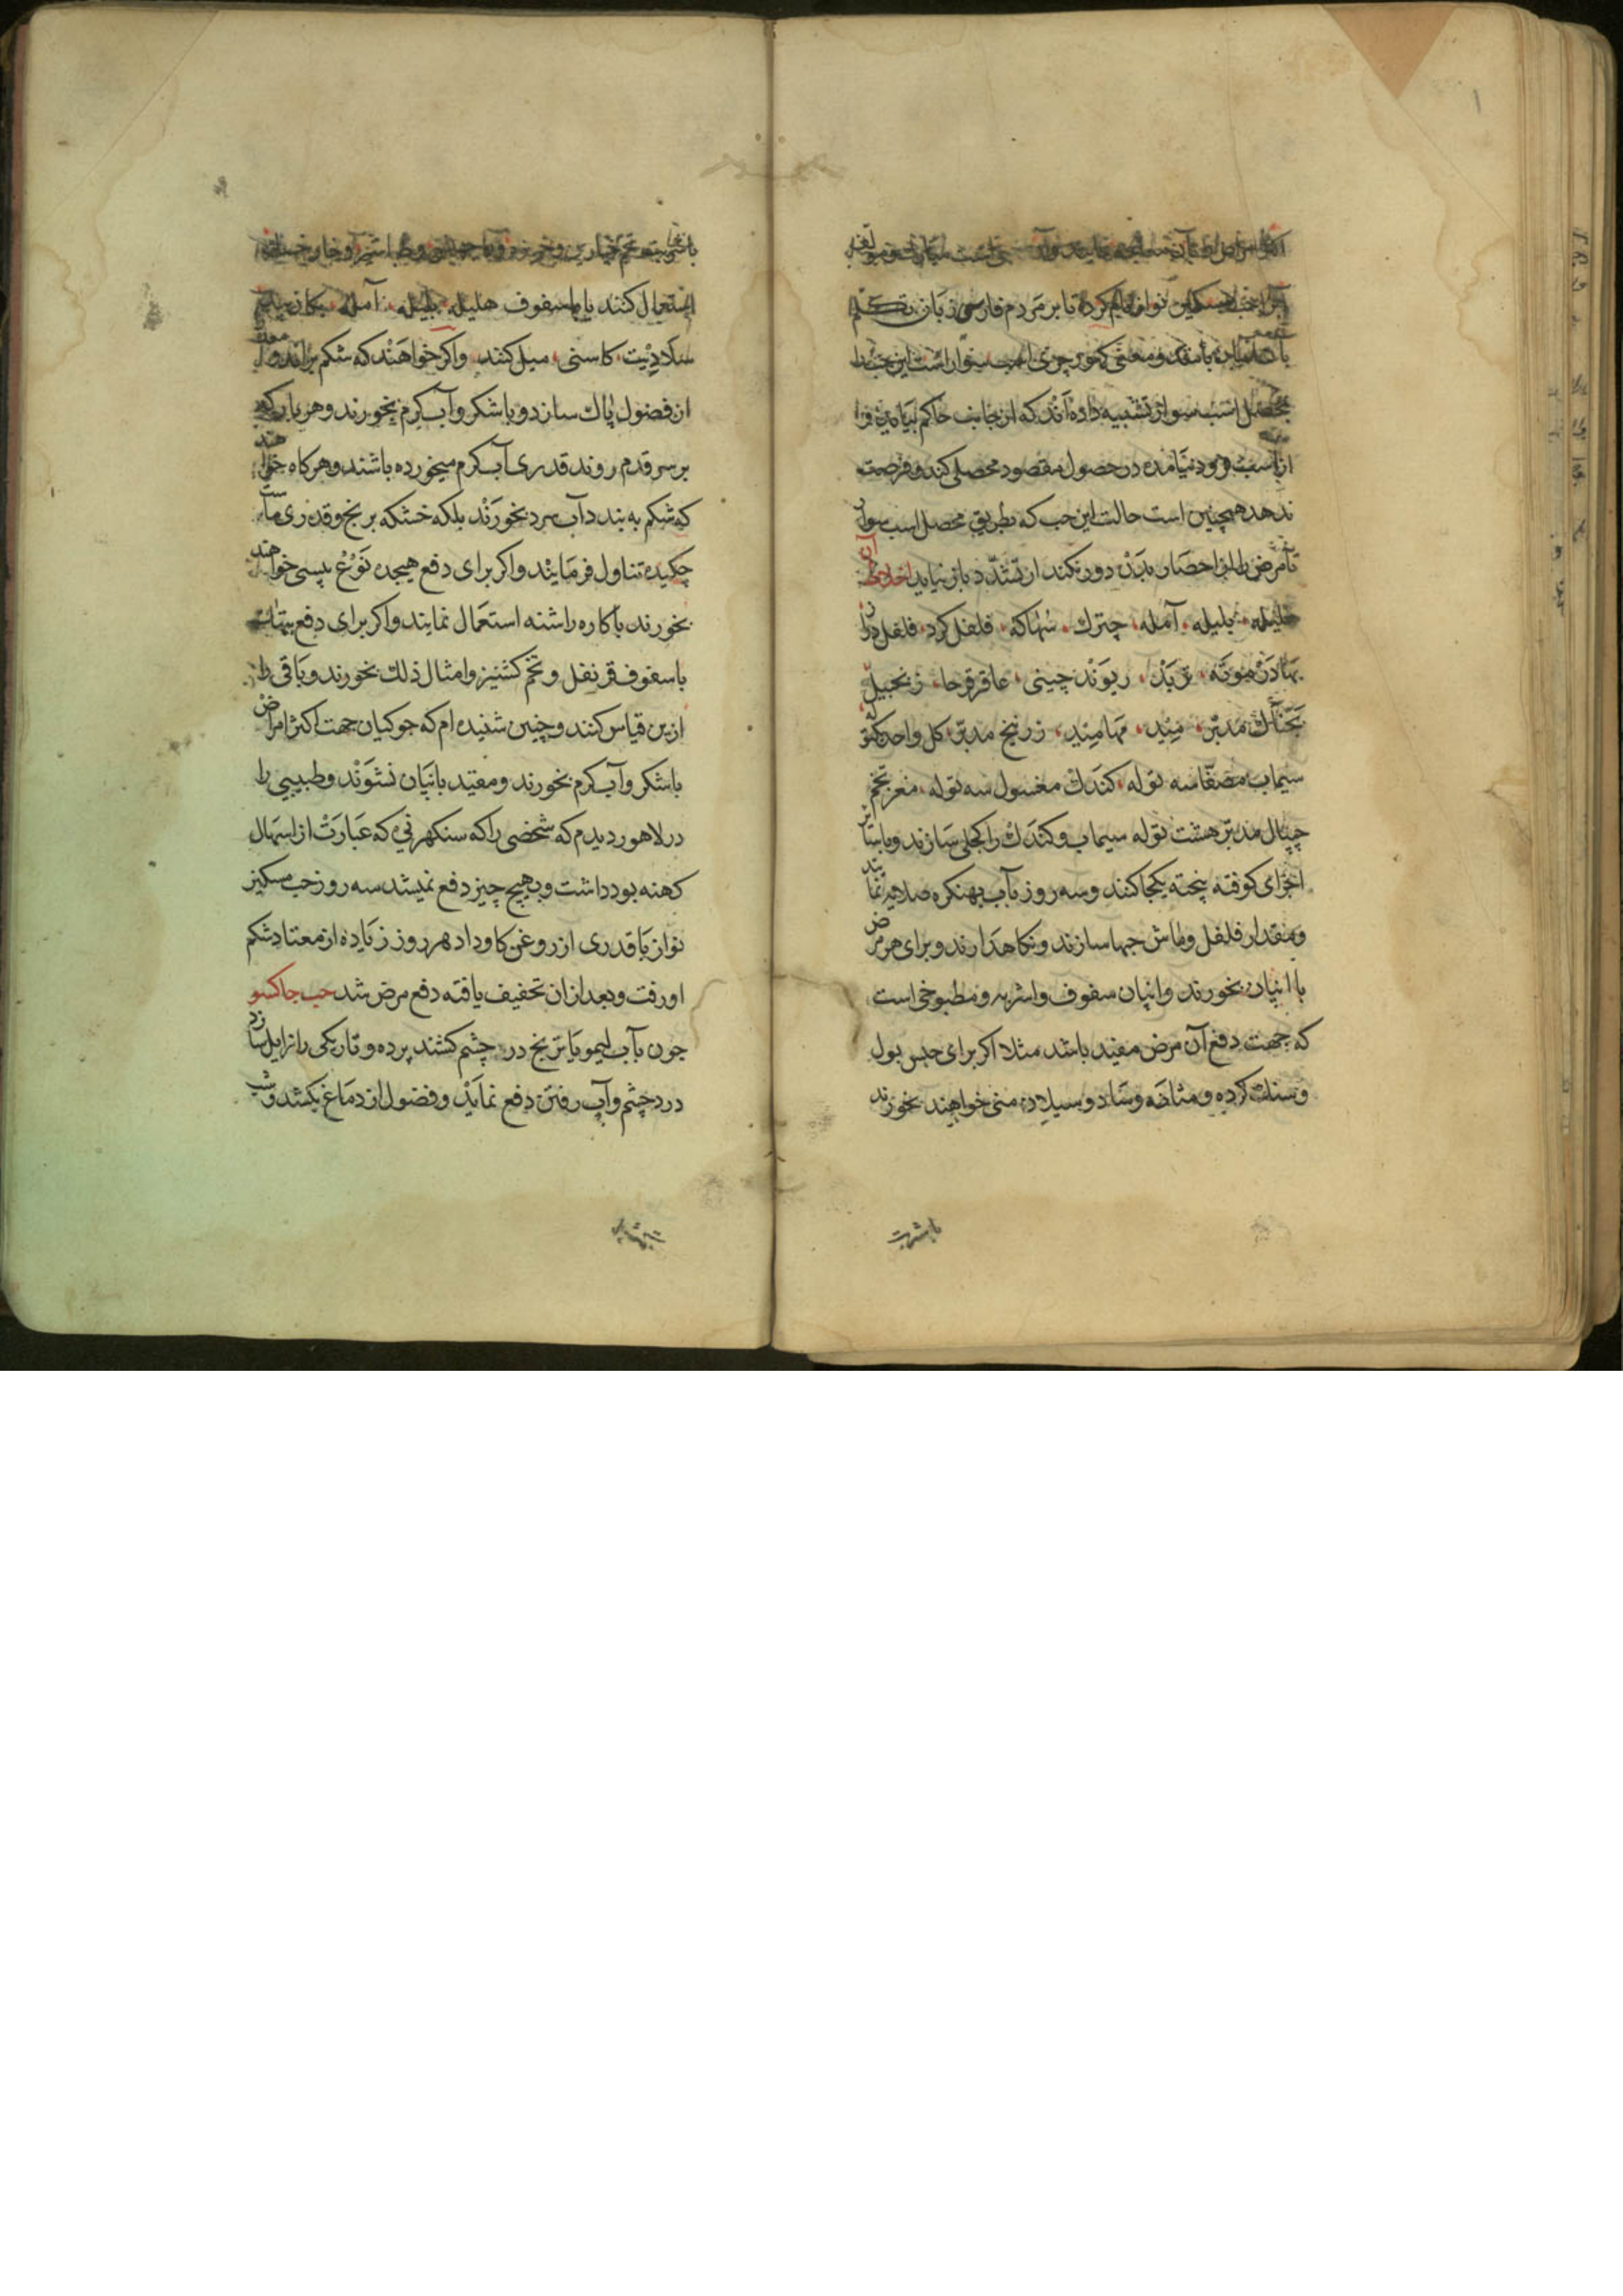 اکثر امراض
آنرا حب مسکین نواز نام کرده تا بر مردم فارسی زبان تکلم
بآن آسان باشد و معنی کهوره چوری اسپ سوار است این حب را
بمحصل اسپ سوار تشبیه داده اند که از جانب حاکم بیاید فرا
از اسپ فرود نیامده در حصول مقصود محصلی کند و فرصت
ندهد همچنین است حالت این حب که بطریق محصل اسپ سوار
تا مرض را از حصار بدن دور نکند از تشدد باز نیاید اخلاط آن
هلیله بلیله آمله چترك سهاکه فلفل کرد فلفل دراز
بهادر موته تربد ریوند چینی عاقرقرحا زنجبیل
بچناك مدبر میند مهامیند زرنیخ مدبر کل واحد یکتوله
سیماب مصفا سه توله کندك مغسول سه توله مغز تخم
جیپال مدبر هشت توله سیماب و کندك را کجلی سازند و با سائر
اجزای کوفته پخته یکجا کنند و سه روز بآب بهنکره صلایه نمایند
و بمقدار فلفل و ماش حبها سازند و نکاهدارند و برای هر مرض
با انپان بخورند و انپان سفوف و اشربه و مطبوخی است
که جهت دفع آن مرض مفید باشد مثلا اکر برای حبس بول
و سنك کرده و مثانه و سیلان منی خواهند بخورند
باشربت
با شربت تخم خیارین و خربزه و
استعمال کنند یا با سفوف هلیله بلیله آمله
سلادیت کاسنی میل کنند و اکر خواهند که شکم براند و معده را
از فضول پاك سازد و با شکر و آب کرم بخورند و هر بار که
بر سر قدم روند قدری آب کرم میخورده باشند و هر کاه خواهند
که شکم به بندد آب سرد بخورند بلکه خشکه برنج و قدری ماست
چکیده تناول فرمایند و اکر برای دفع هیجده نوع پیسی خواهند
بخورند با کاره راشنه استعمال نمایند و اکر برای دفع
با سفوف قرنفل و تخم کشنیز و امثال ذلك بخورند و باقی را
ازین قیاس کنند و چنین شنیده ام که جوکیان جهت اکثر امراض
با شکر و آب کرم بخورند و مقید بانپان نشوند و طبیبی را
در لاهور دیدم که شخصی را که سنکهرنی که عبارت از اسهال
کهنه بود داشت و بهیچ چیز دفع نمیشد سه روز حب مسکین
نواز با قدری از روغن کاو داد هر روز زیاده از معتاد شکم
او رفت و بعد از ان تخفیف یافته دفع مرض شد حب جاکسو
چون بآب لیمو یا ترنج در چشم کشند پرده و تاریکی را زایل سازد
درد چشم و آب رفتن دفع نماید و فضول از دماغ بکشد و شب